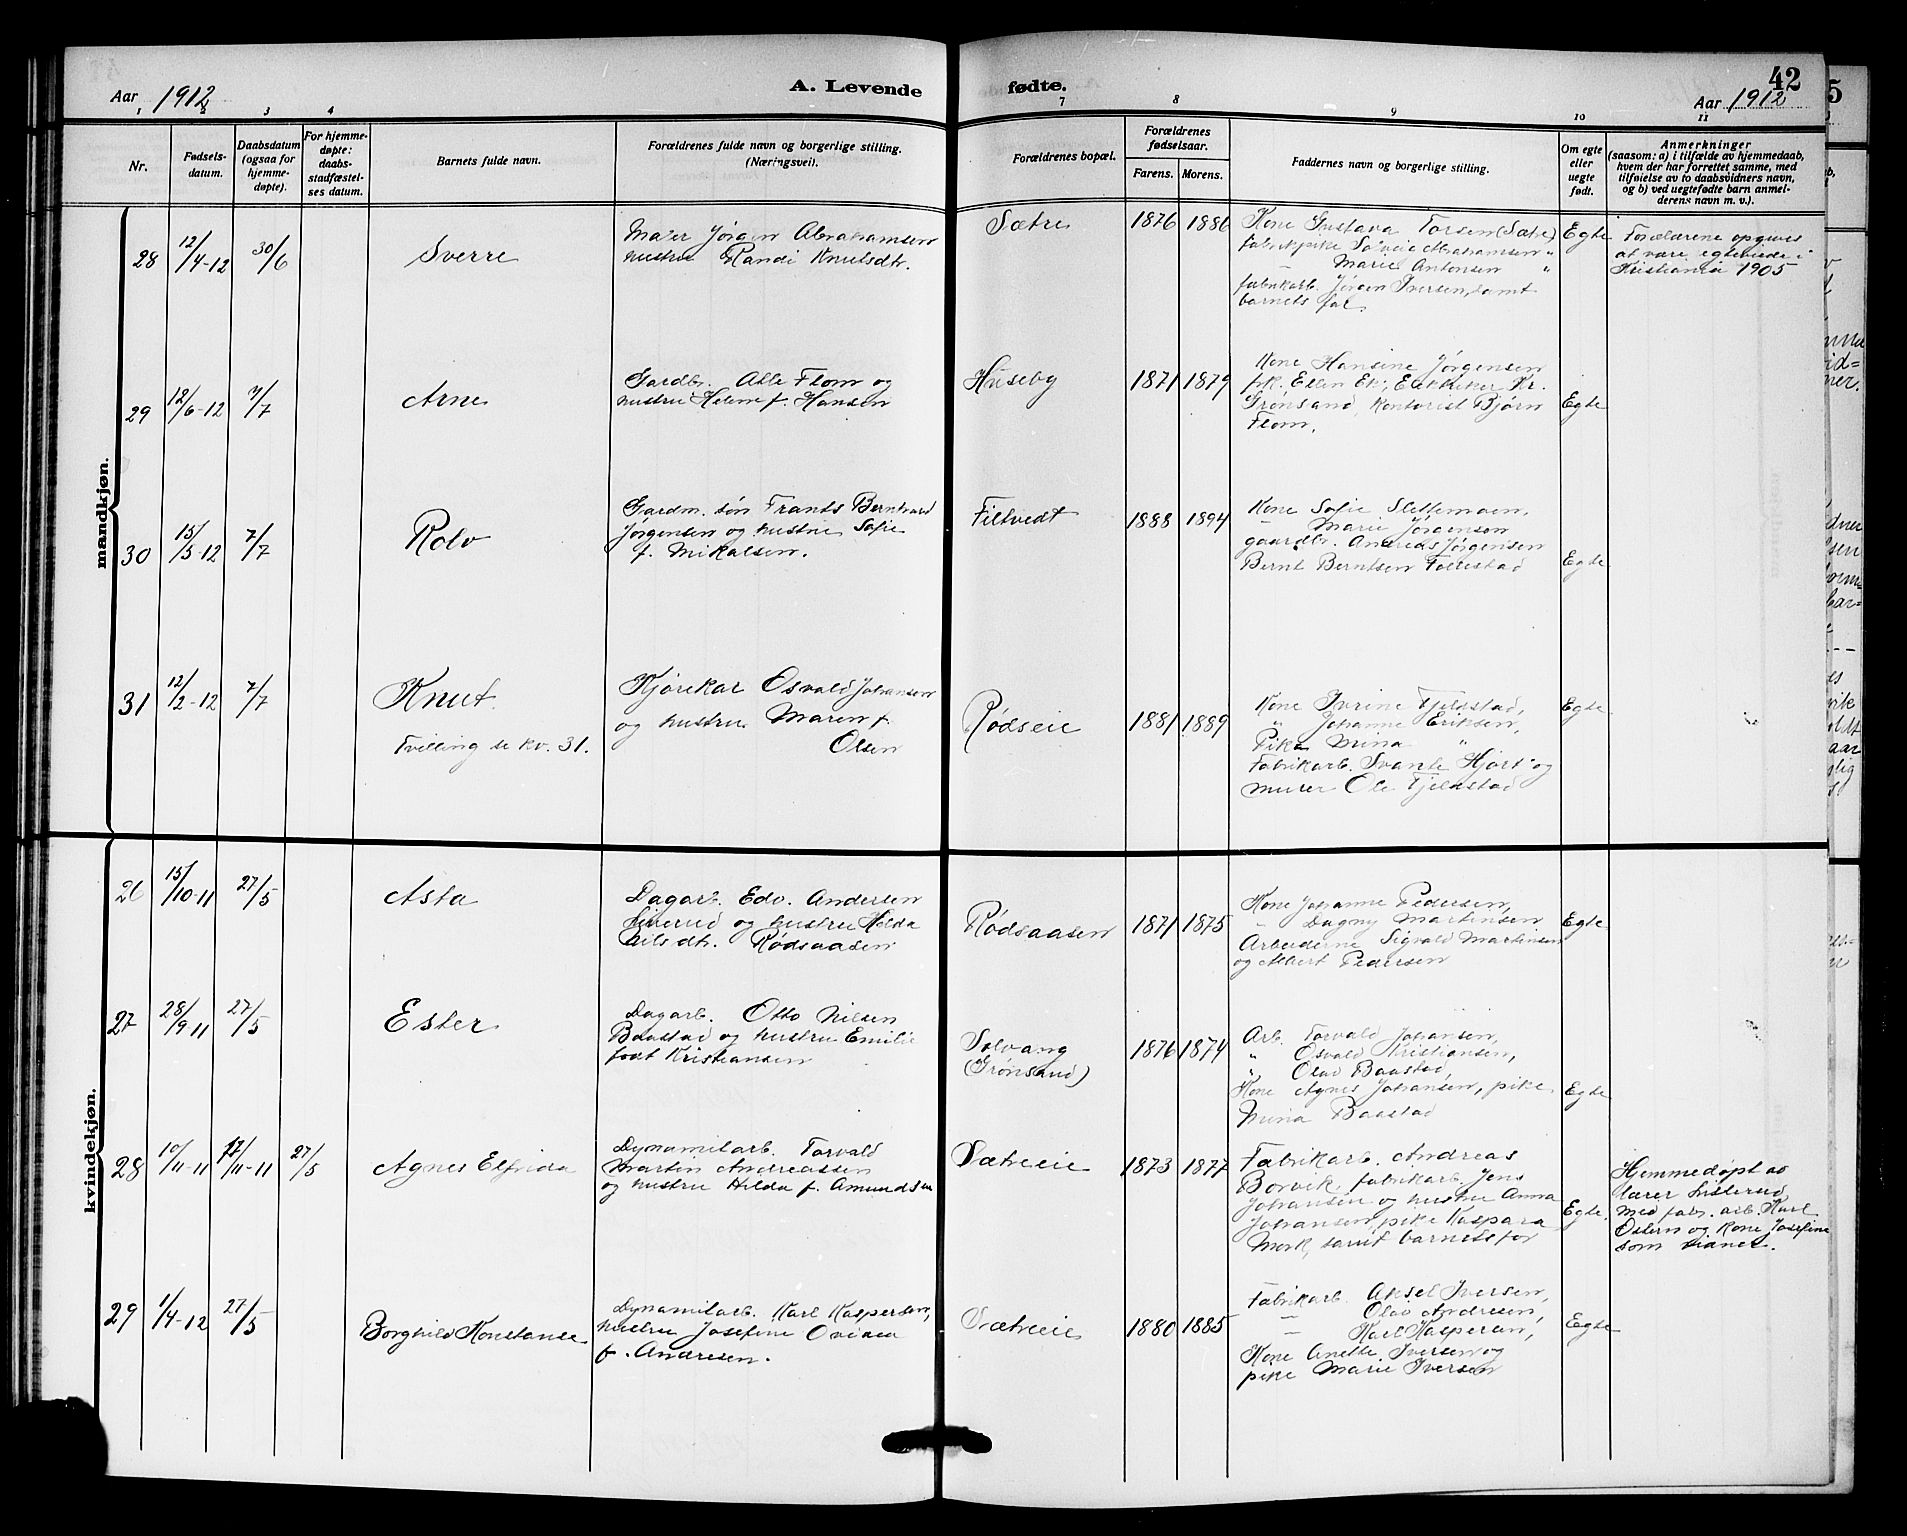 Aar 1912
A. Levende
fødte.
42
Aar 1912
1 2 3 4 7 8 9 10 11
Nr.
Fødsels-
datum.
Daabsdatum
(ogsaa for
hjemme-
døpte).
For hjemme-
døpte:
daabs-
stadfæstel-
ses datum.
Barnets fulde navn.
Forældrenes fulde navn og borgerlige stilling.
(Næringsvei).
Forældrenes bopæl.
Forældrenes
fødselsaar.
Farens. Morens.
Faddernes navn og borgerlige stilling.
Om egte
eller
uegte
født.
Anmerkninger
(saasom: a) i tilfælde av hjemmedaab,
hvem der har forrettet samme, med
tilføielse av to daabsvidners navn,
og b) ved uegtefødte barn anmel-
derens navn m. v.).
mandkjøn.
28
12/4-12
30/6
Sverre
Maler Jørgen Abrahamsen
hustru Randi Knutsdtr.
Sætre
1876 1886
Kone Gustava Torsen (Sætre)
fabrikpike Solveig Abrahamsen "
— Marie Antonsen "
fabrikarb. Jørgen Iversen, samt
barnets far.
Egte
Forældrene opgives
at være egteviede i
Kristiania 1905
29
12/6-12
7/7
Arne
Gardbr. Atle Flom og
hustru Helene f. Hansen
Huseby
1871 1879
Kone Hansine Jørgensen
frk. Ellen Ek, Kr.
Grønsand, kontorist Bjørn
Flom.
Egte
30
15/5-12
7/7
Rolv
Gardm. søn Frants Berntvard
Jørgensen og hustru Sofie
f. Mikalsen.
Filtvedt
1888 1894
Kone Sofie Slettemoen,
— Marie Jørgensen
gaardbr. Andreas Jørgensen
Bernt Berntsen Tollestad
Egte
31
12/2-12
7/7
Knut
Tvilling se kv. 31.
Kjørekar Osvald Johansen
og hustru Maren f.
Olsen
Rødseie
1881 1889
Kone Ivrine Fjeldstad,
" Johanne Eriksen,
Pike Mina "
Fabrikarb. Svante Hjort og
murer Ole Fjeldstad
Egte
kvindekjøn.
26
15/10-11
27/5
Asta
Dagarb. Edv. Andersen
Liverud og hustru Hilda
Nilsdtr. Rødsaasen
Rødsaasen
1871 1875
Kone Johanne Pedersen,
" Dagny Martinsen
Arbeiderne Sigvald Martinsen
og Albert Pedersen
Egte
27
28/9 11
27/5
Ester
Dagarb. Otto Nilsen
Baastad og hustru Emilie
født Kristiansen
Solvang
(Grønsand)
1876 1874
Arb. Torvald Johansen,
" Osvald Kristiansen,
" Olav Baastad,
Kone Agnes Johansen, pike
Mina Baastad
Egte
28
10/11-11
12/11-11
27/5
Agnes Elfrida
Dynamitarb. Torvald
Martin Andreassen
og hustru Hilda f. Amundsen
Sætreeie
1873 1877
Fabrikarb. Andreas
Borvik, fabrikarb. Jens
Johansen og hustru Anna
Johansen, pike Kaspara
Mork, samt barnets far
Egte.
Hjemmedøpt av
lærer Listerud
med fabr. arb. Karl
Ostern og kone Josefine
som vidner.
29
1/4-12
27/5
Borghild Konstanse
Dynamitarb. Karl Kaspersen,
hustru Josefine Ovidea
f. Andresen.
Sætreeie
1880 1885
Fabrikarb. Aksel Iversen,
— Olav Andresen,
— Karl Kaspersen,
Kone Anette Iversen og
pike Marie Iversen
Egte